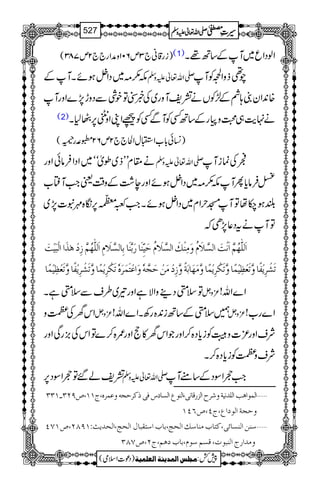 سیرتِ مصطفیٰ صلی اللہ تعالیٰ علیہ وسلم
527
الوداع میں آپ کے ساتھ تھے۔(1) (زرقانی ج۳ ص۱۰۶ و مدارج ج۲ ص۳۸۷)
چوتھی ذوالحجہ کو آپ صلی اللہ تعالیٰ علیہ وسلم مکہ مکرمہ میں داخل ہوئے۔ آپ کے
خاندان بنی ہاشم کے لڑکوں نے تشریف آوری کی خبر سنی تو خوشی سے دوڑ پڑے اور آپ
نے نہایت ہی محبت و پیار کے ساتھ کسی کو آگے کسی کو پیچھے اپنی اونٹنی پر بٹھا لیا۔(2)
(نسائی باب استقبال الحاج ج۲ ص۲۶ مطبوعہ رحیمیہ)
فجر کی نماز آپ صلی اللہ تعالیٰ علیہ وسلم نے مقام ’’ذی طویٰ‘‘ میں ادا فرمائی اور
غسل فرمایا پھر آپ مکہ مکرمہ میں داخل ہوئے اور چاشت کے وقت یعنی جب آفتاب
بلند ہو چکا تھا تو آپ مسجد حرام میں داخل ہوئے۔ جب کعبہ معظمہ پر نگاہ مہر نبوت پڑی
تو آپ نے یہ دعا پڑھی کہ
اَللّٰهُمَّ اَنْتَ السَّلَامُ وَمِنْكَ السَّلَامُ حَيِّنَا رَبَّنَا بِالسَّلَامِ اَللّٰهُمَّ زِدْ هٰذَا الْبَيْتَ
تَشْرِيْفًا وَّتَعْظِيْمًا وَّتَكْرِيْمًا وَّمَهَابَةً وَّزِدْ مَنْ حَجَّهٗ وَاعْتَمَرَهٗ تَكْرِيْمًا وَّتَشْرِيْفًا وَّتَعْظِيْمًا
اے اللہ! عزوجل تو سلامتی دینے والا ہے اور تیری طرف سے سلامتی ہے۔
اے رب! عزوجل ہمیں سلامتی کے ساتھ زندہ رکھ۔ اے اللہ! عزوجل اس گھر کی عظمت و
شرف اور عزت و ہیبت کو زیادہ کر اور جو اس گھر کا حج اور عمرہ کرے تو اس کی بزرگی اور
شرف و عظمت کو زیادہ کر۔
جب حجر اسود کے سامنے آپ صلی اللہ تعالیٰ علیہ وسلم تشریف لے گئے تو حجر اسود پر
المواهب اللدنية وشرح الزرقانی،النوع السادس فی ذکر حجه وعمره،ج۱۱،ص۳۲۹۔۳۳۱
وحجة الوداع،ج٤،ص١٤٦
سنن النسائی،کتاب مناسك الحج،باب استقبال الحج،الحدیث:۲۸۹۱،ص٤٧١
ومدارج النبوت،قسم سوم،باب دهم،ج۲،ص۳۸۷
پیش کش: مجلس المدینة العلمیة (دعوتِ اسلامی)